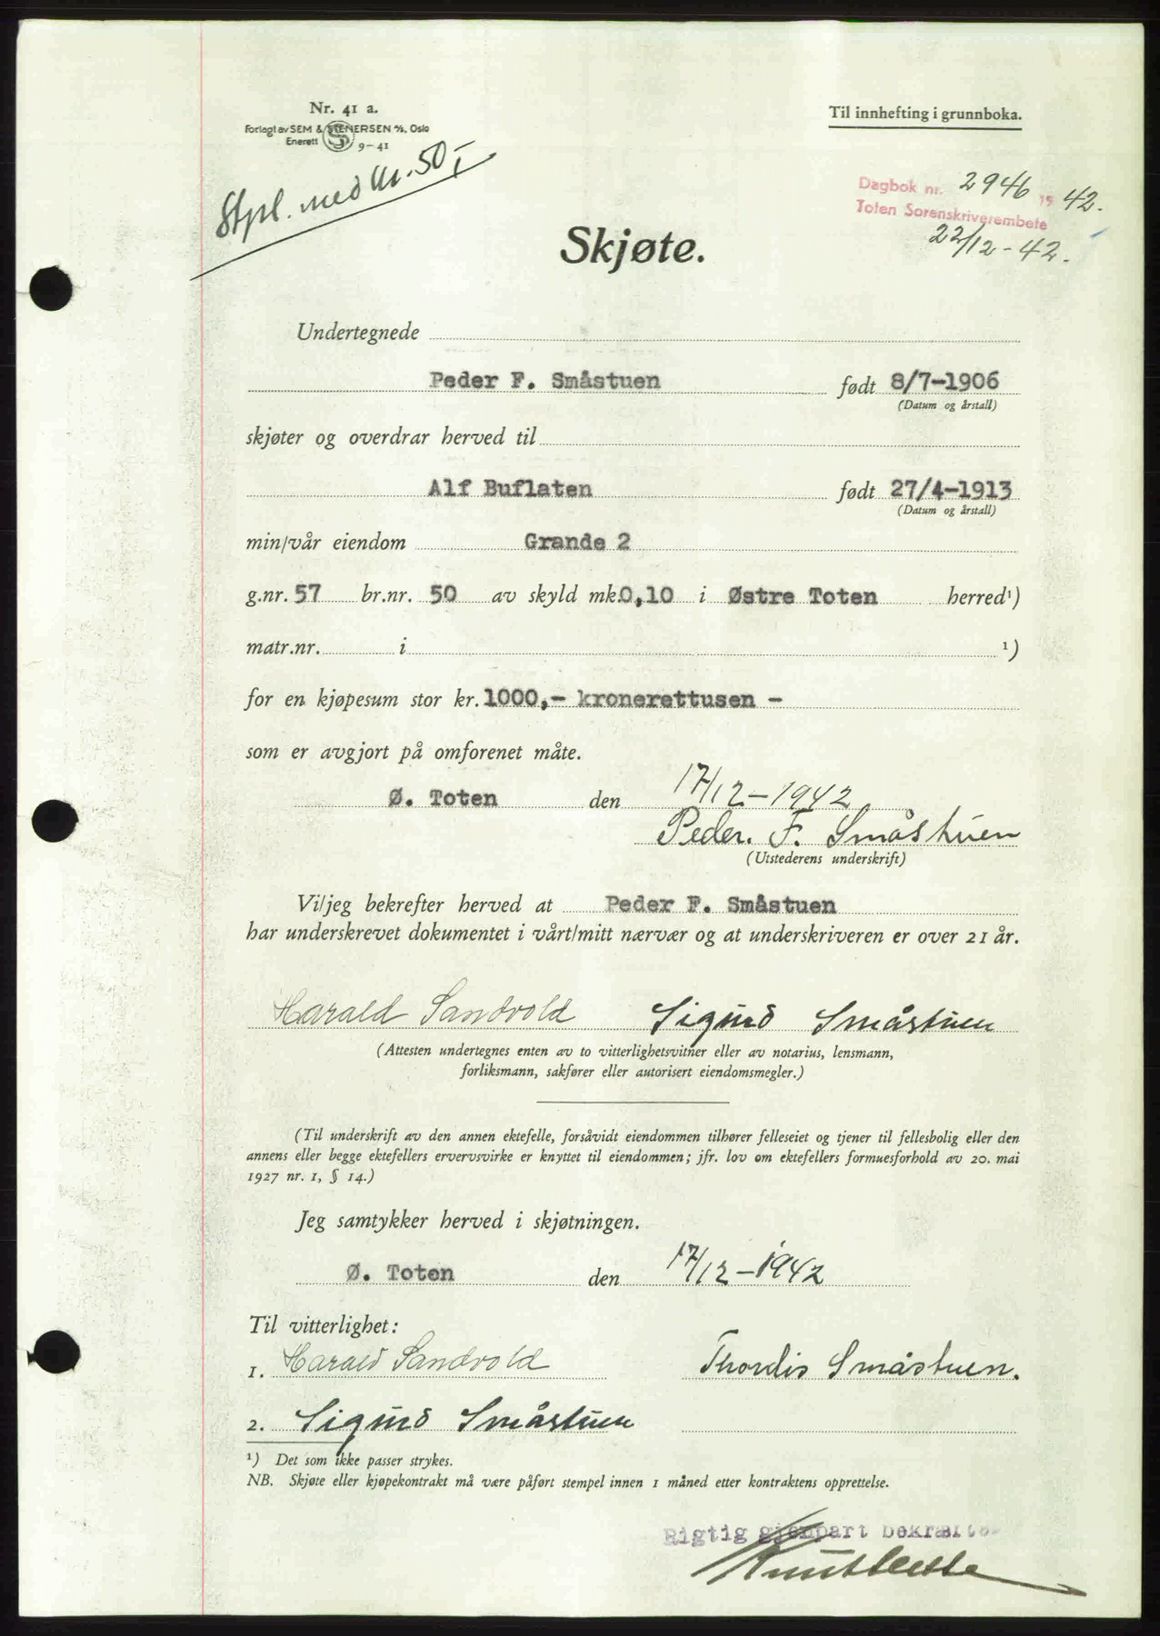 Nr. 41 a.
Forlagt av SEM & STENERSEN A/S, Oslo
Enerett 9-41
Til innhefting i grunnboka.
Stpl. med kr. 50,-
Dagbok nr. 2946 1942.
Toten Sorenskriverembete
22/12-42.
Skjøte.
Undertegnede
Peder F. Småstuen født 8/7-1906
(Datum og årstall)
skjøter og overdrar herved til
Alf Buflaten født 27/4-1913
(Datum og årstall)
min/vår eiendom Grande 2
g.nr. 57 br.nr. 50 av skyld mk. 0,10 i Østre Toten herred¹)
matr.nr. i ¹)
for en kjøpesum stor kr. 1000,- kronerettusen -
som er avgjort på omforenet måte.
Ø. Toten den 17/12-1942
Peder. F. Småstuen
(Utstederens underskrift)
Vi/jeg bekrefter herved at Peder F. Småstuen
har underskrevet dokumentet i vårt/mitt nærvær og at underskriveren er over 21 år.
Harald Sandvold Sigurd Småstuen
(Attesten undertegnes enten av to vitterlighetsvitner eller av notarius, lensmann,
forliksmann, sakfører eller autorisert eiendomsmegler.)
(Til underskrift av den annen ektefelle, forsåvidt eiendommen tilhører felleseiet og tjener til fellesbolig eller den
annens eller begge ektefellers ervervsvirke er knyttet til eiendommen; jfr. lov om ektefellers formuesforhold av 20. mai
1927 nr. 1, § 14.)
Jeg samtykker herved i skjøtningen.
Ø. Toten den 17/12-1942
Til vitterlighet:
1. Harald Sandvold Thordis Småstuen.
2. Sigurd Småstuen
¹) Det som ikke passer strykes.
NB. Skjøte eller kjøpekontrakt må være påført stempel innen 1 måned etter kontraktens opprettelse.
Rigtig gjenpart bekræftes